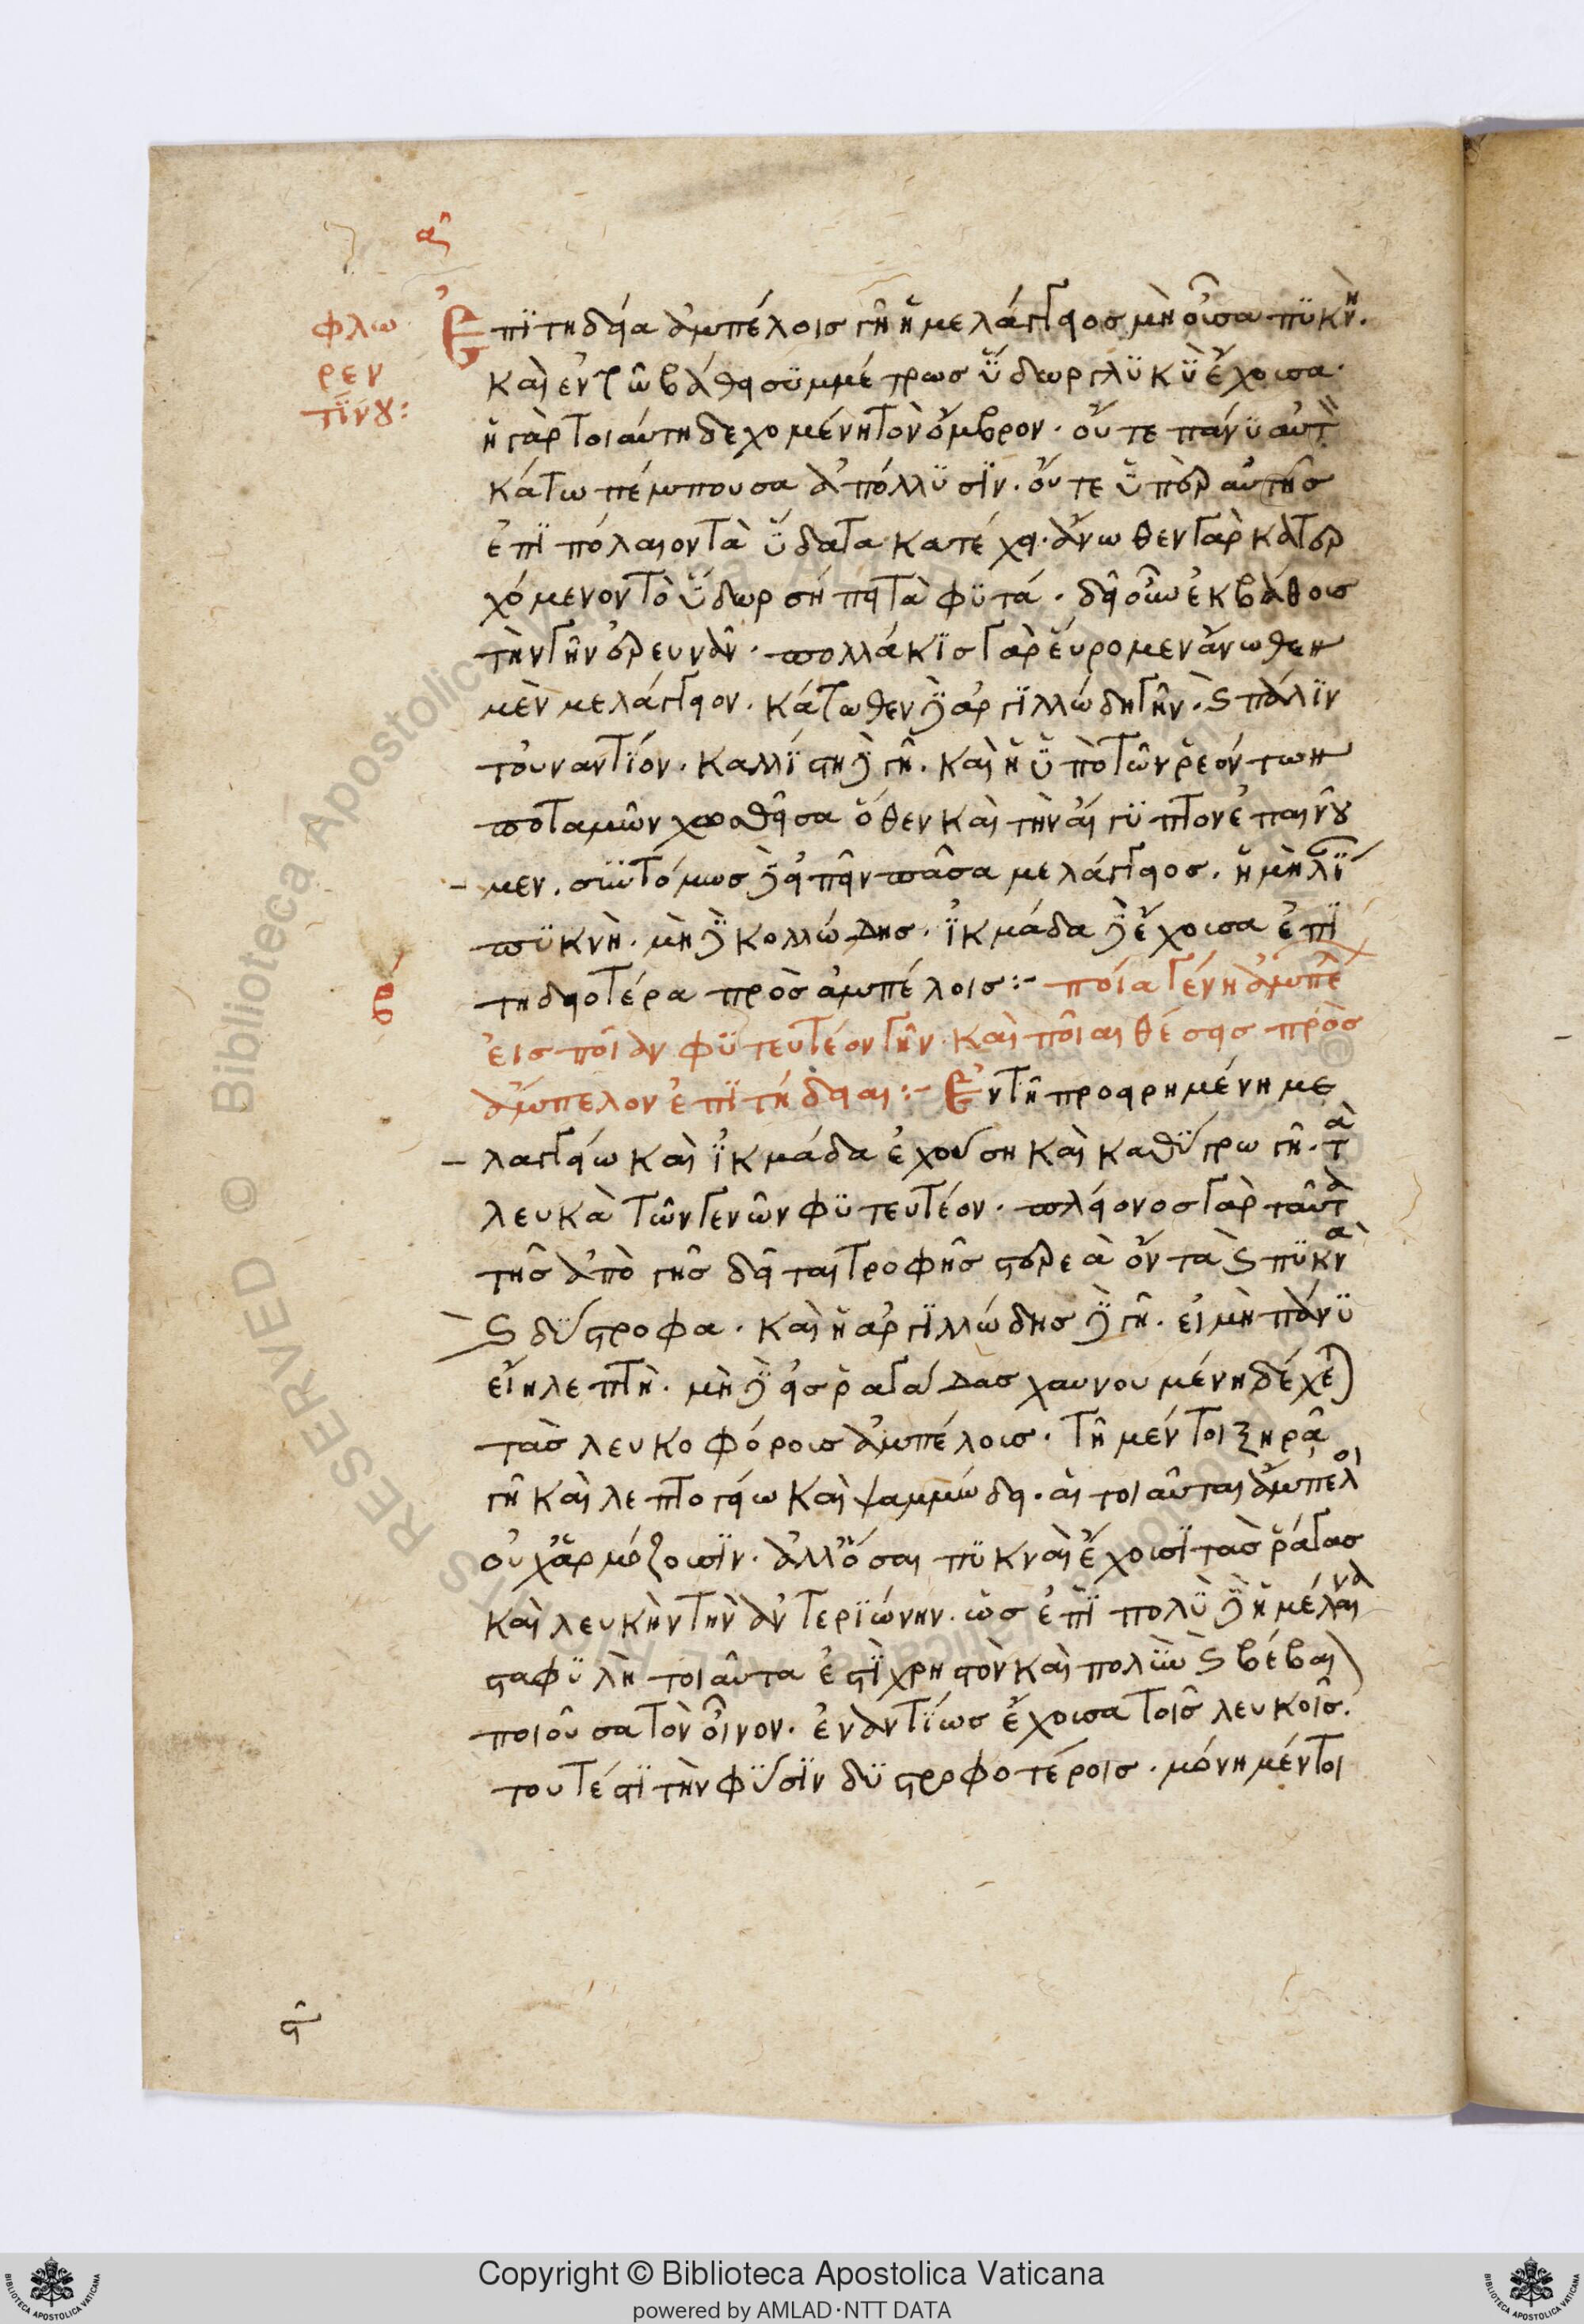 α
φλω
ρεν
τίνου:
Ἐπιτηδεία ἀμπέλοις γῆ ἡ μελάγγειος μὴ οὖσα πυκνὴ.
καὶ ἐν τῷ βάθει συμμέτρως ὕδωρ γλυκὺ ἔχουσα.
ἡ γὰρ τοιαύτη δεχομένη τὸν ὄμβρον. οὔτε πάνυ αὐτὸν
κάτω πέμπουσα ἀπόλλυσιν. οὔτε ὑπὲρ αὐτῆς
ἐπιπόλαιον τὰ ὕδατα κατέχει. ἄνωθεν γὰρ κατερ
χόμενον τὸ ὕδωρ σήπει τὰ φυτά. δεῖ οὖν ἐκ βάθους
τὴν γῆν ἐρευνᾶν. πολλάκις γὰρ εὕρομεν ἄνωθεν
μὲν μελάγγειον. κάτωθεν δὲ ἀργιλλώδη γῆν. καὶ πάλιν
τοὐναντίον. καλλίστη δὲ γῆ. καὶ ἡ ὑπὸ τῶν ῥεόντων
ποταμῶν χωσθεῖσα ὅθεν καὶ τὴν αἴγυπτον ἐπαινοῦ
μεν. συντόμως δὲ εἰπεῖν πᾶσα μελάγγειος. ἡ μὴ λίαν
πυκνὴ. μὴ δὲ κολλώδης. ἰκμάδα δὲ ἔχουσα ἐπι
τηδειοτέρα πρὸς ἀμπέλοις:- ποία γένη ἀμπέλων
β
εἰς ποίαν φυτευτέον γῆν. καὶ ποῖαι θέσεις πρὸς
ἄμπελον ἐπιτήδειαι:- Ἐν τῇ προειρημένη με
λαγγείω καὶ ἰκμάδα ἐχούση καὶ καθύγρω γῆ. τὰ
λευκὰ τῶν γενῶν φυτευτέον. πλείονος γὰρ ταῦτα
τῆς ἀπὸ γῆς δεῖται τροφῆς στερεὰ ὄντα καὶ πυκνὰ
καὶ δύστροφα. καὶ ἡ ἀργιλλώδης δὲ γῆ. εἰ μὴ πάνυ
εἴη λεπτὴ. μὴ δὲ εἰς ῥαγάδας χαυνουμένη δέχεται
τὰς λευκοφόροις ἀμπέλοις. τῇ μέντοι ξηρᾷ
γῆ καὶ λεπτογείω καὶ ψαμμώδει. αἱ τοιαῦται ἄμπελοι
οὐχ ἁρμόζουσιν. ἀλλ' ὅσαι πυκνὰς ἔχουσι τὰς ῥάγας
καὶ λευκὴν τὴν ἀντεριώνην. ὡς ἐπὶ πολὺ δὲ ἡ μέλαινα
σταφυλὴ τοιαῦτα ἐστὶ χρηστὸν καὶ πολὺν καὶ βέβαιον
ποιοῦσα τὸν οἶνον. ἐναντίως ἔχουσα τοῖς λευκοῖς.
τουτέστι τὴν φύσιν δυστροφοτέροις. μόνη μέντοι
Copyright © Biblioteca Apostolica Vaticana
powered by AMLAD·NTT DATA